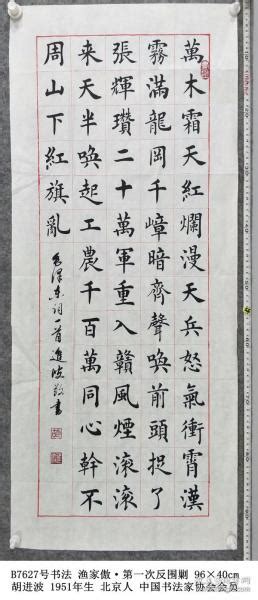 萬木霜天紅爛漫天兵怒氣衝霄漢
霧滿龍岡千嶂暗齊聲喚前頭捉了
張輝瓚二十萬軍重入贛風煙滾滾
來天半喚起工農千百萬同心幹不
周山下紅旗亂
毛澤東詞一首進波敬書
B7627号书法 渔家傲·第一次反围剿 96×40cm
胡进波 1951年生 北京人 中国书法家协会会员